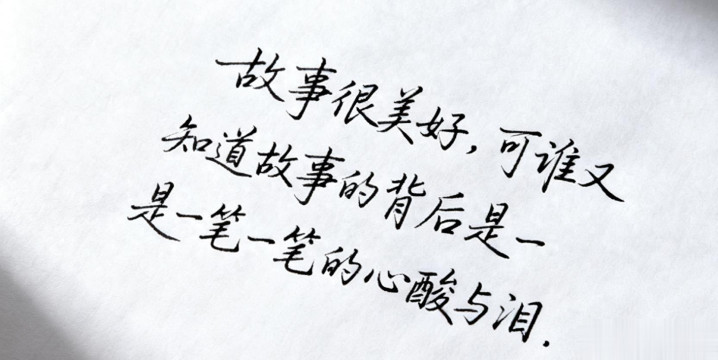 故事很美好,可谁又
知道故事的背后是一
是一笔一笔的心酸与泪.